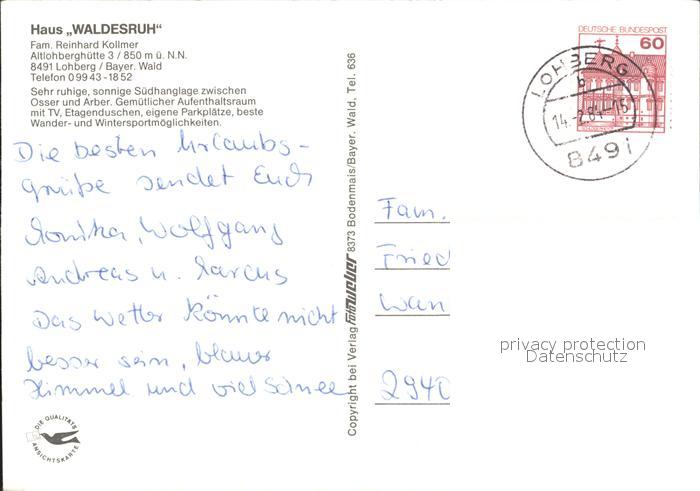 Haus „WALDESRUH"
Fam. Reinhard Kollmer
Altlohberghütte 3 / 850 m ü. N.N.
8491 Lohberg / Bayer. Wald
Telefon 0 99 43 - 18 52
Sehr ruhige, sonnige Südhanglage zwischen
Osser und Arber. Gemütlicher Aufenthaltsraum
mit TV, Etagenduschen, eigene Parkplätze, beste
Wander- und Wintersportmöglichkeiten.
Die besten Urlaubs-
grüße sendet Euch
Monika, Wolfgang
Andreas u. Marcus
Das Wetter könnte nicht
besser sein, blauer
Himmel und viel Schnee
DIE QUALITÄTS
ANSICHTSKARTE
Copyright bei Verlag foto weber 8373 Bodenmais/Bayer. Wald. Tel. 636
DEUTSCHE BUNDESPOST
60
LOHBERG
b
14.-2.84-15
8491
Fam.
Fried
Wan
2940
privacy protection
Datenschutz